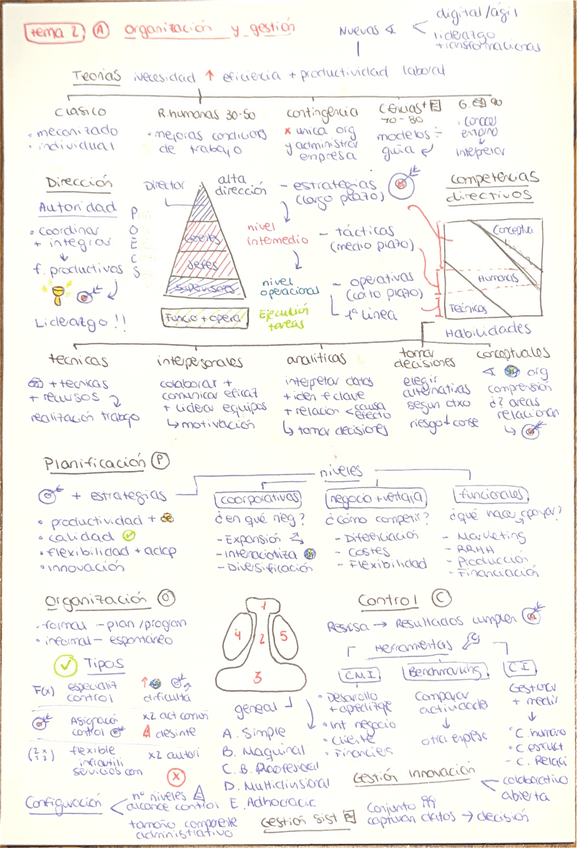 tema 2. A organización y gestión
Nuevas
digital/ágil
liderazgo
transformacional
Teorías necesidad ↑ eficiencia + productividad laboral
Clásico
• mecanizado
• individual
R. humanas 30-50
• mejoras condiciones
de trabajo
contingencia
x única org
y administrar
empresa
70-80
modelos
guía
interpretar
Dirección
Autoridad
• coordinar
+ integrar
f. productivas
Liderazgo !!
P
O
E
C
S
Director
Jefes
Supervisores
Funcio + opera
alta
dirección
nivel
intermedio
nivel
operacional
Ejecución
tareas
- estrategias
(largo plazo)
- tácticas
(medio plazo)
- operativas
(corto plazo)
1ª línea
Competencias
directivos
Conceptua
Humanas
Técnicas
Habilidades
técnicas
+ técnicas
+ recursos
realización trabajo
interpersonales
colaborar +
comunicar eficaz
+ liderar equipos
↳ motivación
analíticas
interpretar datos
+ iden f clave
+ relacion < causa
efecto
↳ tomar decisiones
tomar
decisiones
elegir
alternativas
según ctxo
conceptuales
org
comprensión
áreas
relacionan
Planificación P
+ estrategias
• productividad +
• calidad
• flexibilidad + adap
• innovación
niveles
coorporativas
¿en qué neg?
- Expansión
- Internacionaliza
- Diversificación
negocio + ventaja
¿cómo competir?
- Diferenciación
- Costes
- Flexibilidad
funcionales
- Marketing
- RRHH
- Producción
- Financiación
Organización O
• formal - plan/program
• informal - espontáneo
Tipos
F(a) especializ
control
dificulta
Asignació
control
desinte
flexible
x2 autori
Configuración
nº niveles
alcance control
administrativo
1
4 2 5
3
general
A. Simple
B. Maquinal
C. B. Profesional
D. Multidivisional
E. Adhocracic
Control C
Revisa → Resultados cumplen
Herramientas
C.M.I
• Desarrollo
+ aprendizaje
• int negocio
• Cliente
• Financiera
Benchmarking
Comparar
actividades
↓
otra empresa
C I
Gestionar
+ medir
• C. humano
• C. estruct
- C. Relaci
Gestión innovación
colaborativo
abierta
Gestión Sist
Conjunto
capturan datos → decisión